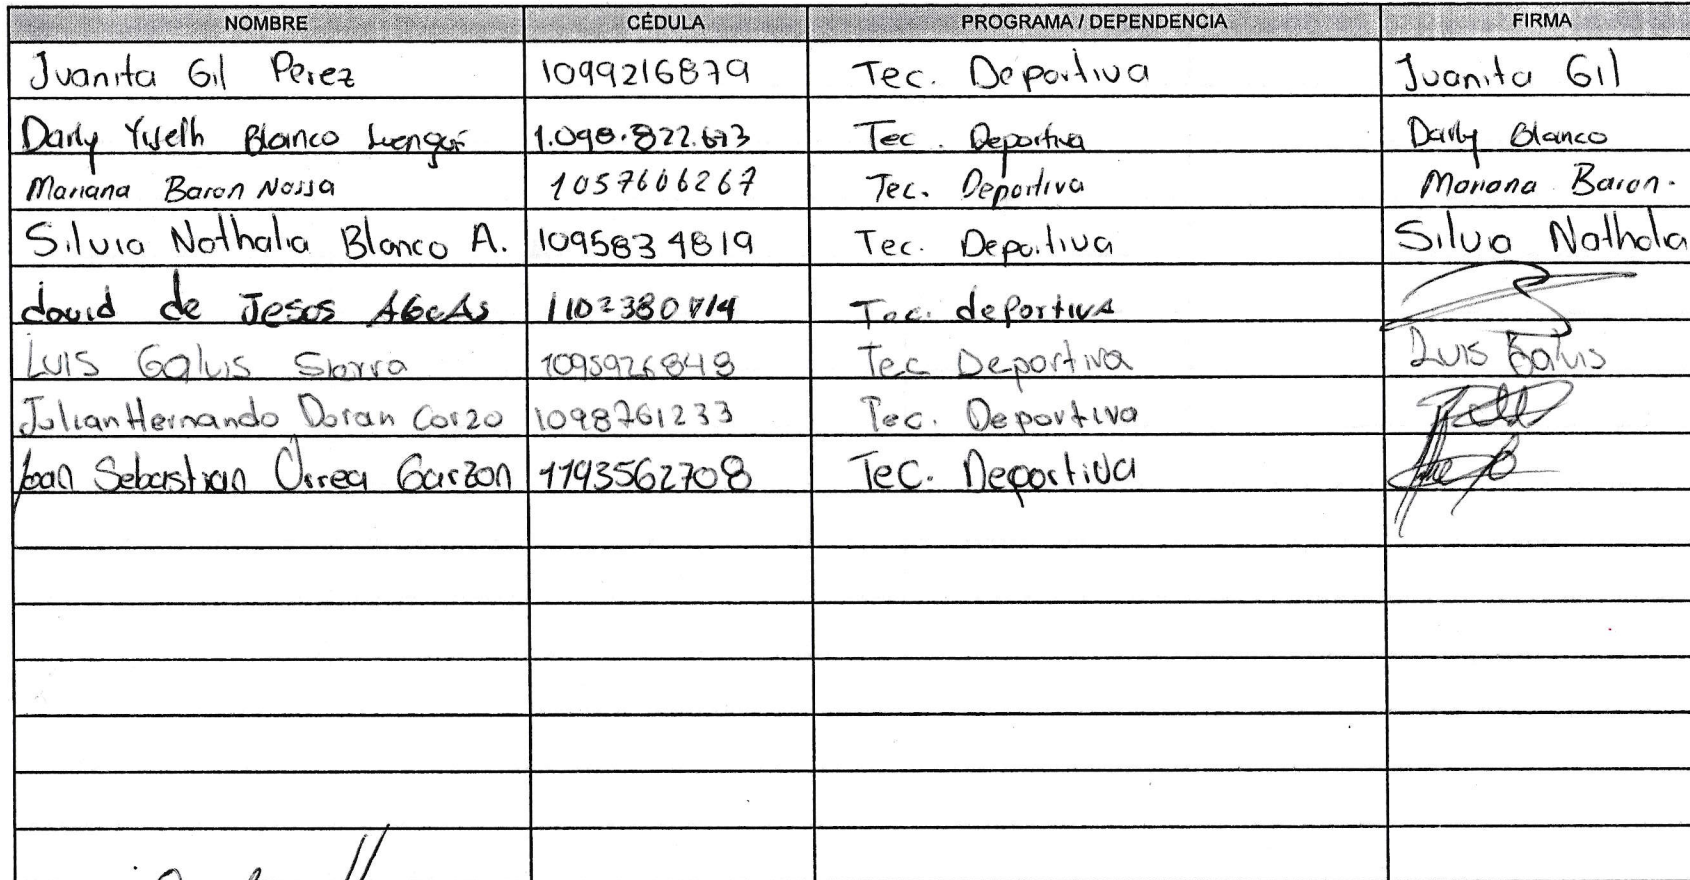 NOMBRE CÉDULA PROGRAMA / DEPENDENCIA FIRMA
Juanita Gil Perez 1099216879 Tec. Deportiva Juanita Gil
Darly Yiseth Blanco 1.098.822.673 Tec. Deportiva Darly Blanco
Mariana Baron Nossa 1057606267 Tec. Deportiva Mariana Baron.
Silvia Nathalia Blanco A. 1095834819 Tec. Deportiva Silvia Nathalia
david de Jesus Tec. deportiva
Luis Galvis Sierra 1095926848 Tec Deportiva Luis Galvis
Julian Hernando Duran Corzo 1098761233 Tec. Deportiva
Joan Sebastian Urrea Garzon 1193562708 Tec. Deportiva